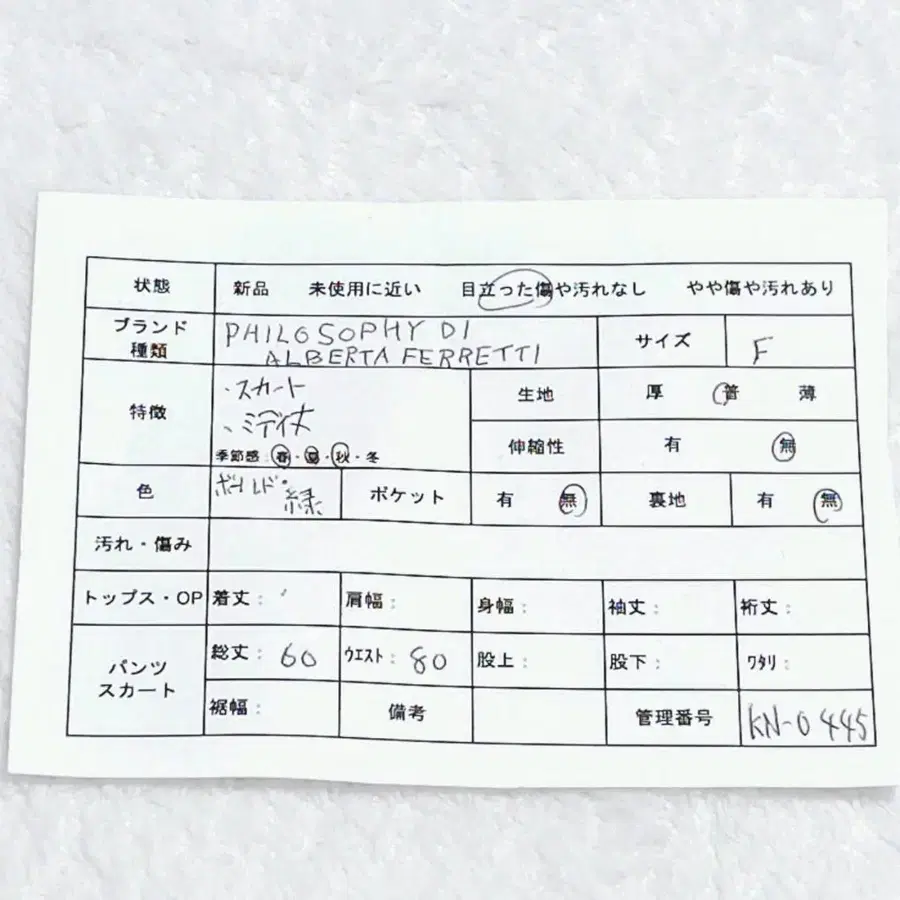 状態 新品 未使用に近い 目立った傷や汚れなし やや傷や汚れあり
ブランド 種類 PHILOSOPHY DI ALBERTA FERRETTI サイズ F
特徴 ・スカート
・ミディ丈
季節感:春・夏・秋・冬
生地 厚 普 薄
伸縮性 有 無
色 緑 ポケット 有 無 裏地 有 無
汚れ・傷み
トップス・OP 着丈: 肩幅: 身幅: 袖丈: 裄丈:
パンツ スカート 総丈: 60 ウエスト: 80 股上: 股下: ワタリ:
裾幅: 備考 管理番号 KN-0445